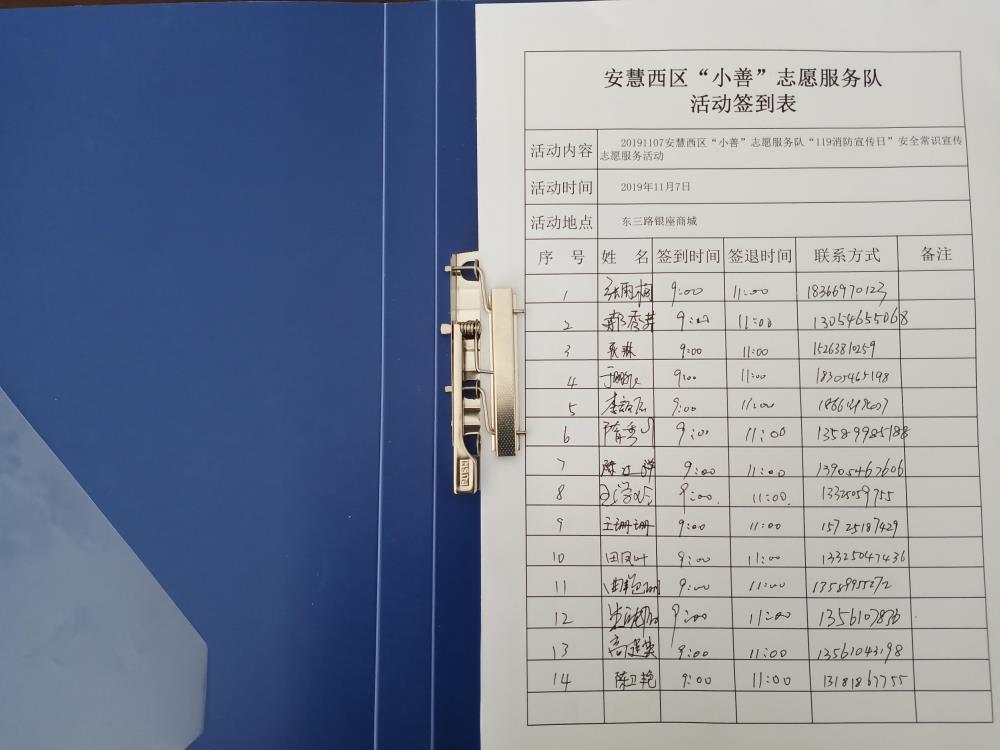 安慧西区“小善”志愿服务队
活动签到表
活动内容 20191107安慧西区“小善”志愿服务队“119消防宣传日”安全常识宣传
志愿服务活动
活动时间 2019年11月7日
活动地点 东三路银座商城
序 号 姓 名 签到时间 签退时间 联系方式 备注
1 张雨梅 9:00 11:00 18366970123
2 9:00 11:00 13054655068
3 9:00 11:00 15263810259
4 9:00 11:00 18305465198
5 9:00 11:00
6 9:00 11:00 13589985188
7 9:00 11:00 13905462606
8 9:00 11:00 13325059755
9 王珊珊 9:00 11:00 15725187429
10 田凤叶 9:00 11:00 13325047436
11 9:00 11:00 13589955272
12 9:00 11:00
13 高建英 9:00 11:00 13561043198
14 陈卫艳 9:00 11:00 13181867755